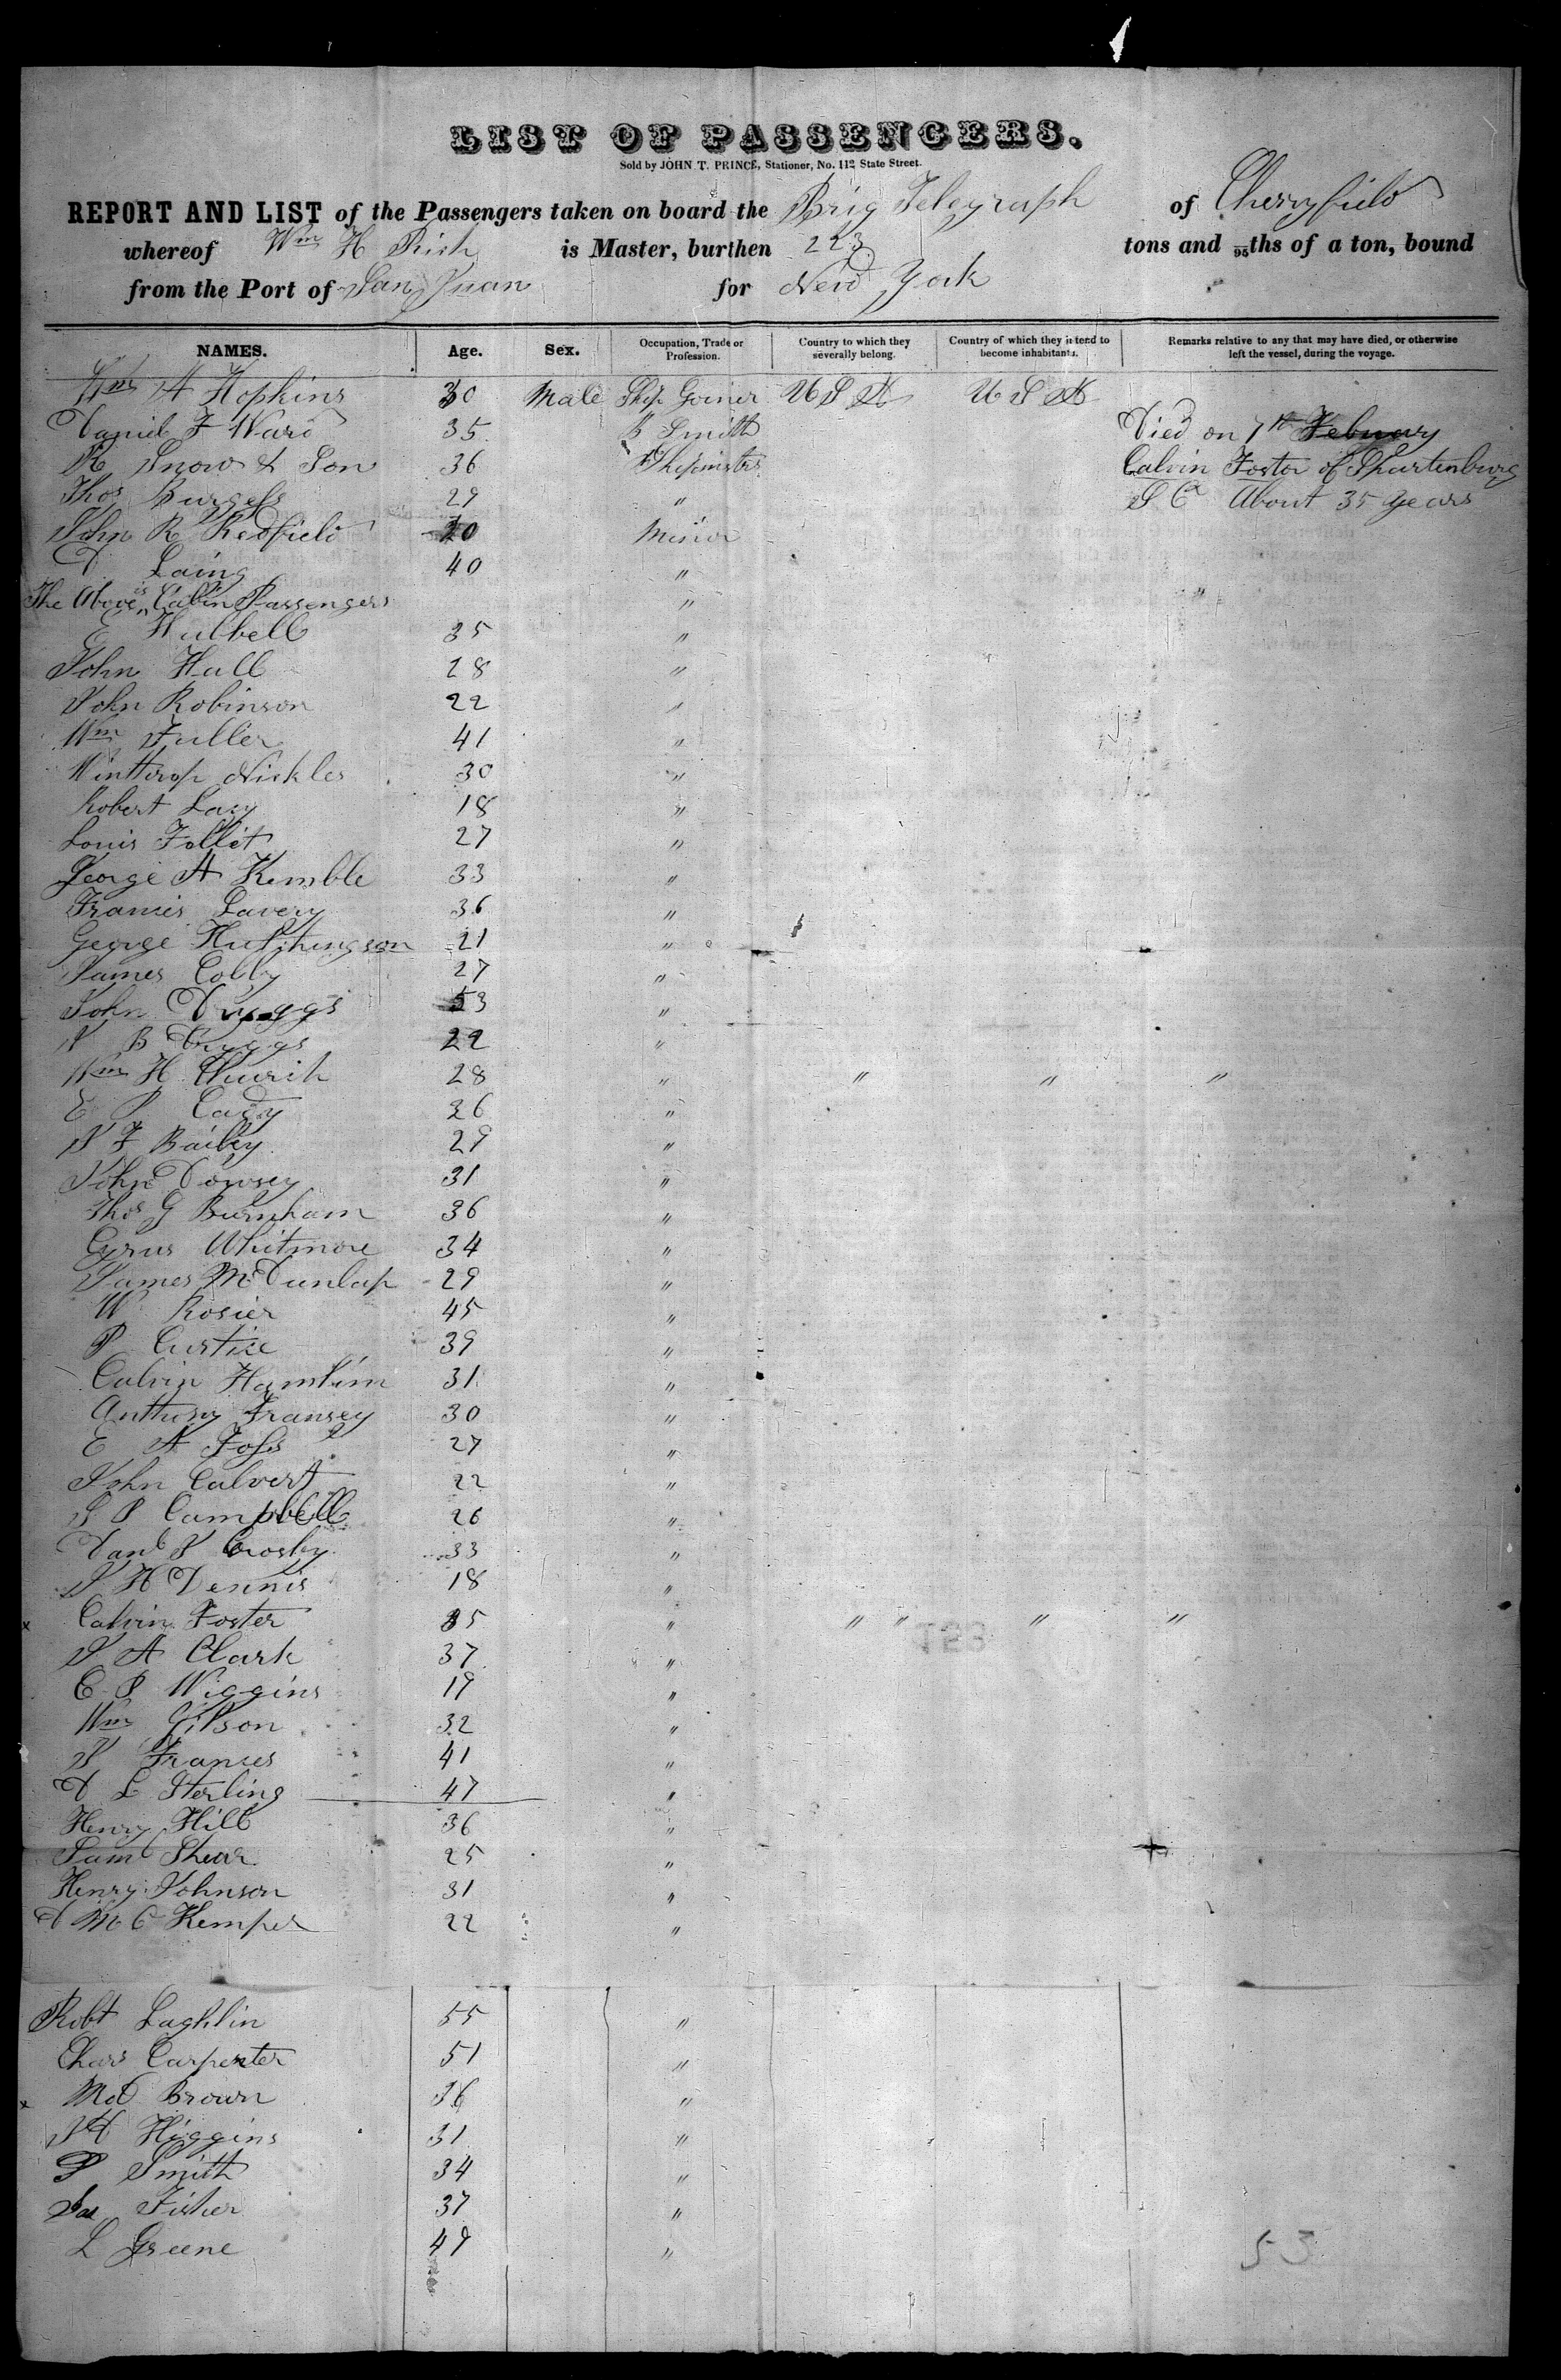 LIST OF PASSENGERS.
Sold by JOHN T. PRINCE, Stationer, No. 112 State Street.
REPORT AND LIST of the Passengers taken on board the Brig Telegraph of Cherryfield
whereof Wm H Rich is Master, burthen 223 tons and 95ths of a ton, bound
from the Port of San Juan for New York
NAMES. Age. Sex. Occupation, Trade or Profession. Country to which they severally belong. Country of which they intend to become inhabitants. Remarks relative to any that may have died, or otherwise left the vessel, during the voyage.
Wm A Hopkins 30 Male Ship Goiner U S A U S A
Daniel F Ward 35 B Smith Died on 7th Febuary
R Snow & Son 36 Shipmaster Calvin Foster of
Thos Burgess 29 " S C About 35 years
John R Redfield 20 Minor
D Laing 40 "
The Above is Cabin Passengers " "
E Hubbell 35 "
John Hall 28 "
John Robinson 22 "
Wm Fuller 41 "
Winthrop Nickles 30 "
Robert Lacy 18 "
Louis Follet 27 "
George A Kemble 33 "
Francis Lavery 36 "
George Hutchingson 21 "
James Colby 27 "
John Druggs 53 "
B 22 "
Wm H Church 28 " " " "
E P Cady 26 "
S F Bailey 29 "
John Dowsey 31 "
Thos G Burnham 36 "
Cyrus Whitmore 34 "
James McDunlap 29 "
W Rosier 45 "
P Curtice 39 "
Calvin Hamlim 31 "
Anthony Fransey 30 "
E A Foss 27 "
John Calvert 22 "
S P Campbell 26 "
Danl S Crosby 33 "
S H Dennis 18 "
x Calvin Foster 35 " " " " "
S A Clark 37 "
C P Wiggins 19 "
Wm Gilson 32 "
S Frances 41 "
D L Sterling 47 "
Henry Hill 36 "
Saml Shear 25 "
Henry Johnson 31 "
D Mc C Kemper 22 "
Robt Laghlin 55 "
Chars Carpenter 51 "
x Brown 36 "
Higgins 31 "
P Smith 34 "
Fisher 37 "
L Greene 49 "
53